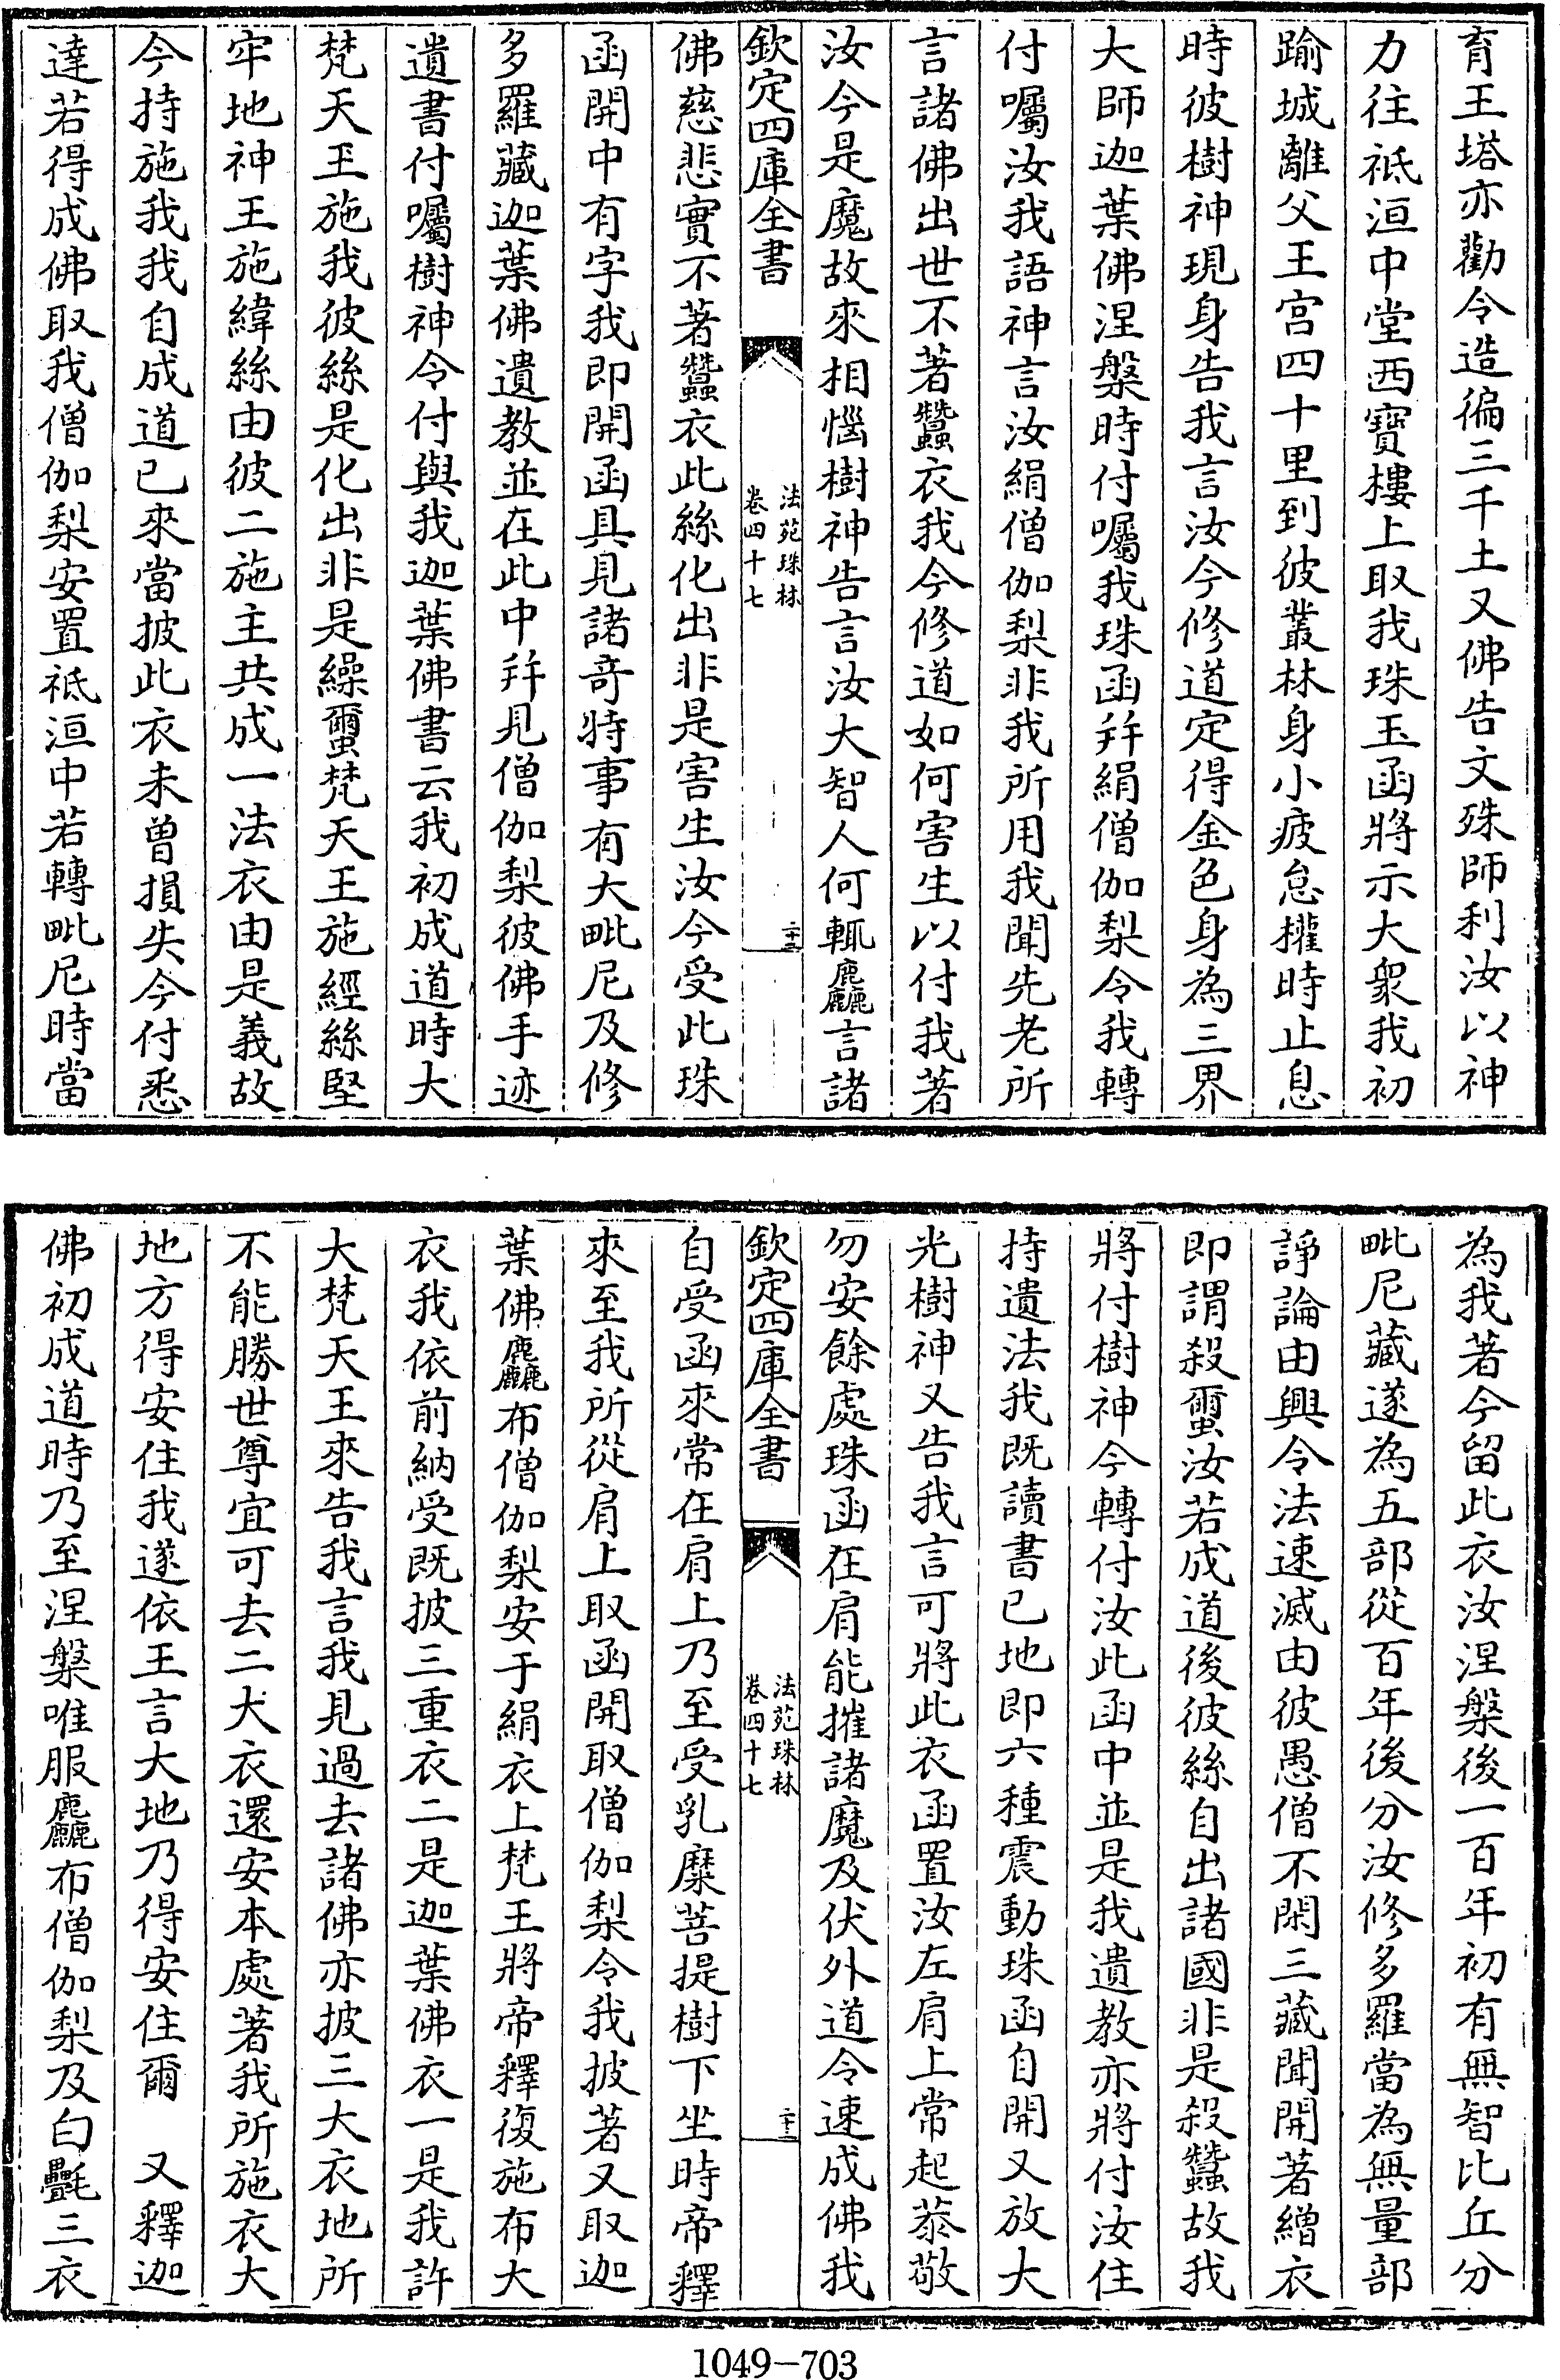 育王塔亦勸令造徧三千土又佛告文殊師利汝以神
力往祗洹中堂西寶樓上取我珠玉函將示大衆我初
踰城離父王宫四十里到彼叢林身小疲怠權時止息
時彼樹神現身告我言汝今修道定得金色身為三界
大師迦葉佛涅槃時付囑我珠函并絹僧伽梨令我轉
付囑汝我語神言汝絹僧伽梨非我所用我聞先老所
言諸佛出世不著蠶衣我今修道如何害生以付我著
汝今是魔故來相惱樹神告言汝大智人何輒麤言諸
欽定四庫全書
法苑珠林
卷四十七
二十三
佛慈悲實不著蠶衣此絲化出非是害生汝今受此珠
函開中有字我即開函具見諸奇特事有大毗尼及修
多羅藏迦葉佛遺教並在此中并見僧伽梨彼佛手迹
遺書付囑樹神令付與我迦葉佛書云我初成道時大
梵天王施我彼絲是化出非是繰蠒梵天王施經絲堅
牢地神王施緯絲由彼二施主共成一法衣由是義故
今持施我我自成道已來當披此衣未曾損失今付悉
達若得成佛取我僧伽梨安置祗洹中若轉毗尼時當
為我著今留此衣汝涅槃後一百年初有無智比丘分
毗尼藏遂為五部從百年後分汝修多羅當為無量部
諍論由興令法速滅由彼愚僧不閑三藏聞開著繒衣
即謂殺蠒汝若成道後彼絲自出諸國非是殺蠶故我
將付樹神今轉付汝此函中並是我遺教亦將付汝住
持遺法我既讀書已地即六種震動珠函自開又放大
光樹神又告我言可將此衣函置汝左肩上常起恭敬
勿安餘處珠函在肩能摧諸魔及伏外道令速成佛我
欽定四庫全書
法苑珠林
卷四十七
二十三
自受函來常在肩上乃至受乳糜菩提樹下坐時帝釋
來至我所從肩上取函開取僧伽梨令我披著又取迦
葉佛麤布僧伽梨安于絹衣上梵王將帝釋復施布大
衣我依前納受既披三重衣二是迦葉佛衣一是我許
大梵天王來告我言我見過去諸佛亦披三大衣地所
不能勝世尊宜可去二大衣還安本處著我所施衣大
地方得安住我遂依王言大地乃得安住爾　又釋迦
佛初成道時乃至涅槃唯服麤布僧伽梨及白㲲三衣
1049-703